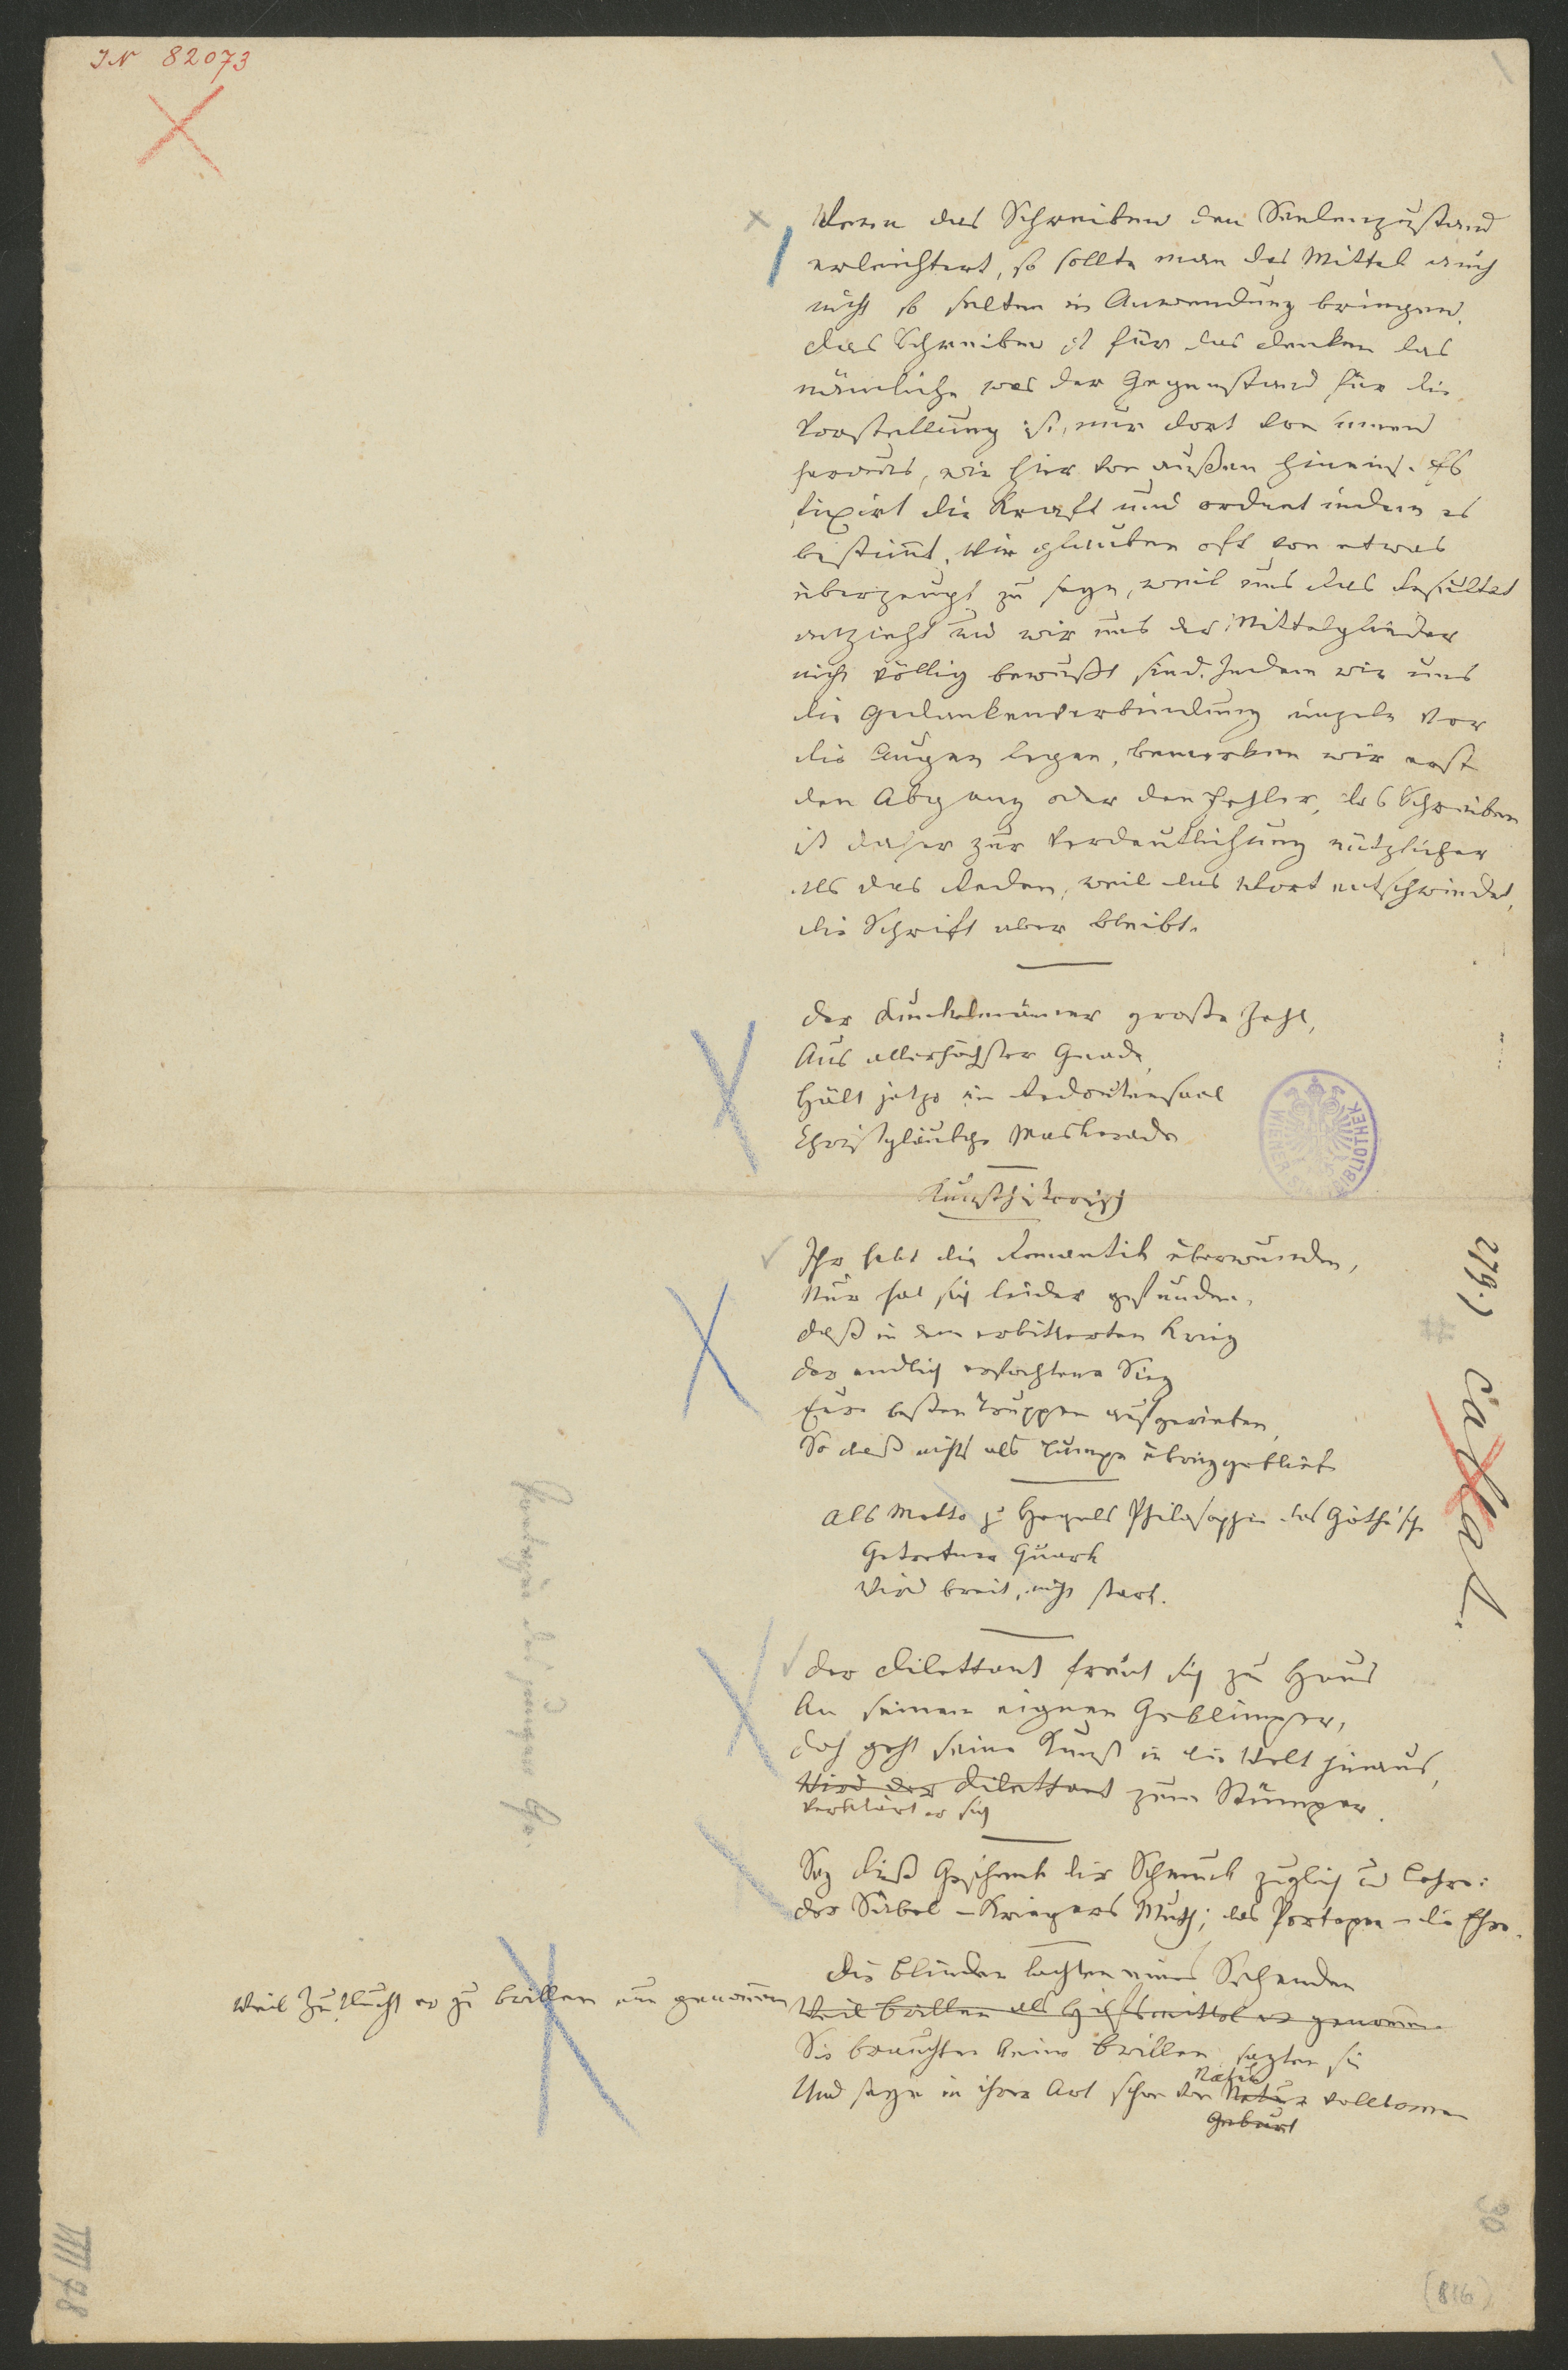 IN 82073
Wenn das Schreiben den Seelenzustand
erleichtert, so sollte man das Mittel auch
nicht so selten in Anwendung bringen.
Das Schreiben ist für das Denken das
nämliche was der Gegenstand für die
Vorstellung ist, nur dort von innen
heraus, wie hier von außen hinein. Es
fixirt die Kraft und ordnet indem es
bestimmt. Wir glauben oft von etwas
überzeugt zu seyn, weil uns das Resultat
anzieht und wir uns der Mittelglieder
nicht völlig bewußt sind. Indem wir uns
die Gedankenverbindung einzeln vor
die Augen legen, bemerken wir erst
den Abgang oder den Fehler, das Schreiben
ist daher zur Verdeutlichung nützlicher
als das Reden, weil das Wort entschwindet,
die Schrift aber bleibt.
Der Dunkelmänner große Zahl,
Aus allerhöchster Gnade,
Hält jetzo im Redoutensaal
Christgläub'ge Maskerade
Kunsthistorisch
Ihr habt die Romantik überwunden,
Nur hat sich leider gefunden,
Daß in dem erbitterten Krieg
Der endlich erfochtene Sieg
Eure besten Truppen aufgerieben,
So daß nichts als Lumpe übriggeblieb
Als Motto zu Hegels Philosophie das Göthe'sche
Getretner Quark
Wird breit, nicht stark.
Der Dilettant freut sich zu Haus
An seinem eignen Geklimper,
Doch geht seine Kunst in die Welt hinaus,
Wird der Dilettant zum Stümper.
Verklärt er sich
Sey dieß Geschenk dir Schmuck zugleich und Lehre:
Der Säbel – Kriegers Muth; das Portepee – die Ehre.
Die Blinden lachten eines Sehenden
Weil Zuflucht er zu Brillen nun genommen
Weil Brillen als Hilfsmittel er genommen
Sie brauchten keine Brillen sagten sie
Natur
Und seyn in ihrer Art schon von Natur vollkommen
Geburt
279.)
#
30
(816)
VIII 78
WIENER STADTBIBLIOTHEK